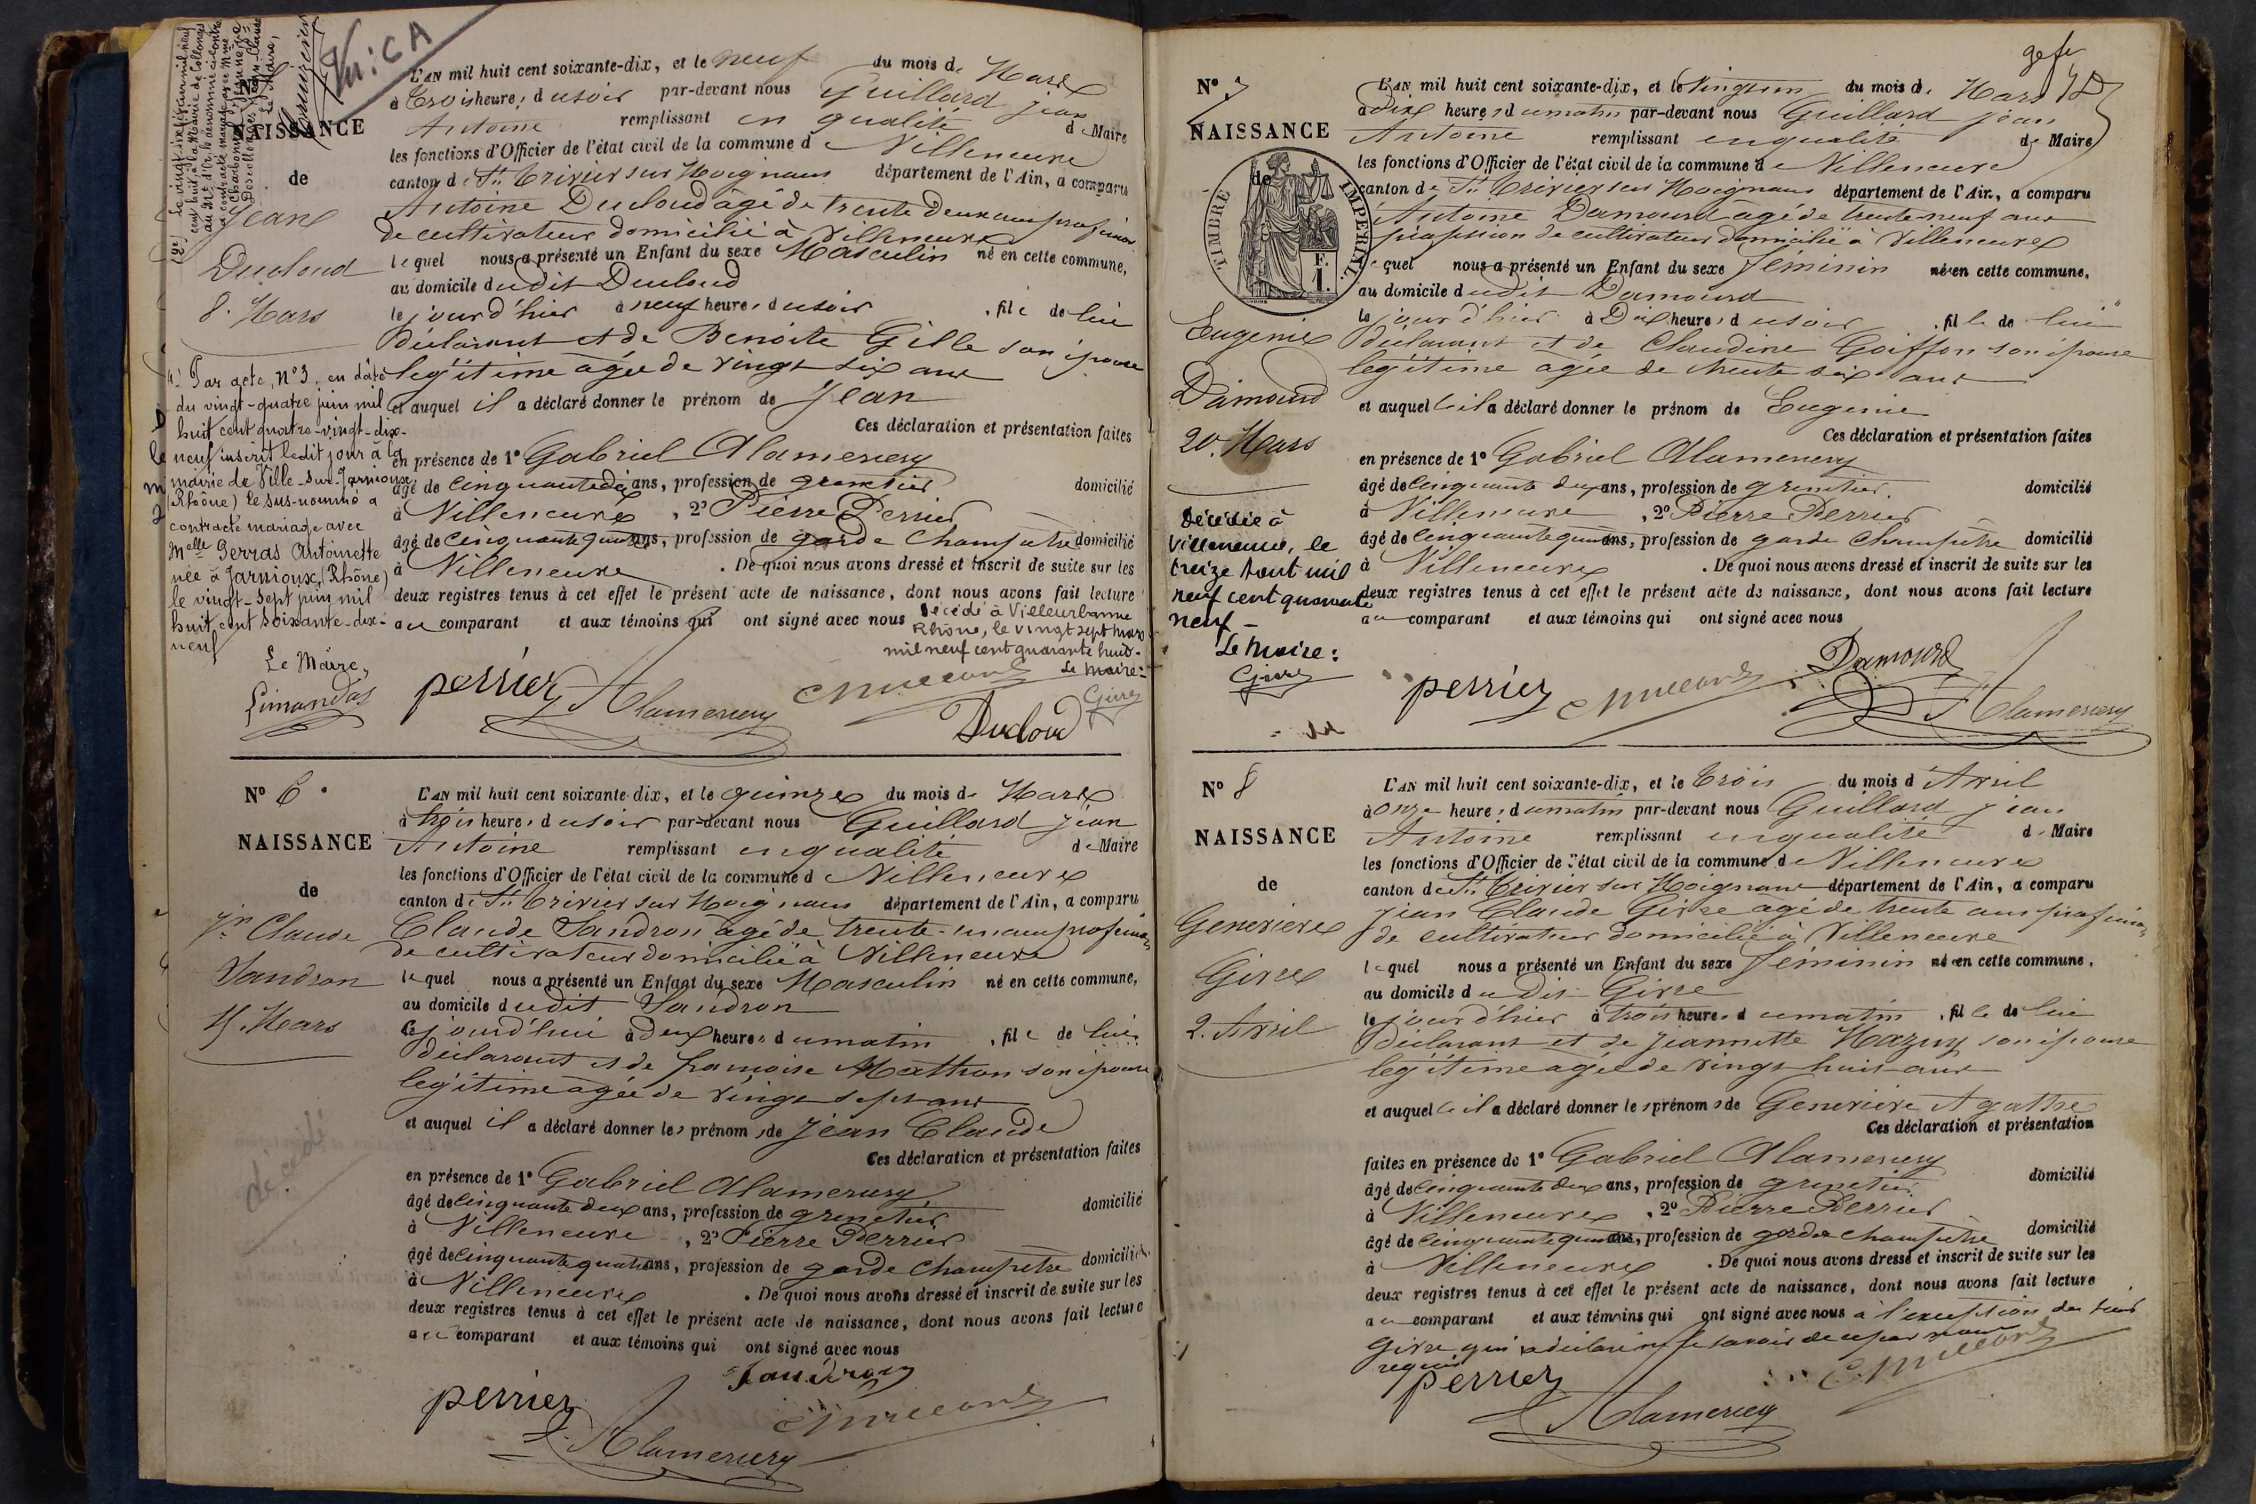 NAISSANCE
de
Jean
Ducloud
8. Mars
L'AN mil huit cent soixante-dix, et le neuf du mois de Mars
à trois heures du soir par-devant nous Guillard jean
Antoine remplissant en qualité de Maire
les fonctions d'Officier de l'état civil de la commune de Villeneuve
canton de St Trivier sur Moignans département de l'Ain, a comparu
Antoine Ducloud âgé de trente deux ans profession
de cultivateur domicilié à Villeneuve
lequel nous a présenté un Enfant du sexe Masculin né en cette commune,
au domicile dudit Ducloud
le jour d'hier à neuf heures du soir, fils de lui
déclarant et de Benoite Gille son épouse
legitime agée de vingt six ans
et auquel il a déclaré donner le prénom de Jean
Ces déclaration et présentation faites
en présence de 1° Gabriel Alamercery
âgé de cinquante deux ans, profession de grenetier domicilié
à Villeneuve, 2° Pierre Perrier
âgé de cinquante quatre ans, profession de garde champetre domicilié
à Villeneuve. De quoi nous avons dressé et inscrit de suite sur les
deux registres tenus à cet effet le présent acte de naissance, dont nous avons fait lecture
au comparant et aux témoins qui ont signé avec nous
Décédé à Villeurbanne
Rhône, le vingt sept mars
mil neuf cent quarante huit.
Le Maire:
Givre
perrier Alamercery
Ducloud
Par acte, N° 3, en date
du vingt-quatre juin mil
huit cent quatre-vingt-dix-
neuf inscrit ledit jour à la
mairie de Ville-sur-Jarnioux
(Rhône) le sus-nommé a
contracté mariage avec
Melle Perras Antoinette
née à Jarnioux, (Rhône)
le vingt-sept juin mil
huit cent soixante-dix-
neuf
Le Maire,
Limandas
N° 6
NAISSANCE
de
Jn Claude
Sandron
15. Mars
décédé
L'AN mil huit cent soixante-dix, et le quinze du mois de Mars
à trois heures du soir par-devant nous Guillard jean
Antoine remplissant en qualité de Maire
les fonctions d'Officier de l'état civil de la commune de Villeneuve
canton de St Trivier sur Moignans département de l'Ain, a comparu
Claude Sandron âgé de trente-un ans profession
de cultivateur domicilié à Villeneuve
lequel nous a présenté un Enfant du sexe Masculin né en cette commune,
au domicile dudit Sandron
le jourd'hui à Deux heures du matin, fils de lui
déclarant et de françoise Matthon son épouse
legitime agée de vingt sept ans
et auquel il a déclaré donner les prénoms de Jean Claude
Ces déclaration et présentation faites
en présence de 1° Gabriel Alamercery
âgé de cinquante deux ans, profession de grenetier domicilié
à Villeneuve, 2° Pierre Perrier
âgé de cinquante quatre ans, profession de garde champetre domicilié
à Villeneuve. De quoi nous avons dressé et inscrit de suite sur les
deux registres tenus à cet effet le présent acte de naissance, dont nous avons fait lecture
au comparant et aux témoins qui ont signé avec nous
Sandron
perrier
Alamercery
N° 7
NAISSANCE
de
TIMBRE IMPERIAL.
F.
1.
Eugenie
Damound
20. Mars
Décédée à
Villeneuve, le
treize Aout mil
neuf cent quarante
neuf -
Le Maire:
Givre
L'AN mil huit cent soixante-dix, et le Vingt un du mois de Mars
à dix heures du matin par-devant nous Guillard jean
Antoine remplissant en qualité de Maire
les fonctions d'Officier de l'état civil de la commune de Villeneuve
canton de St Trivier sur Moignans département de l'Ain, a comparu
Antoine Damourd âgé de trente-neuf ans
profession de cultivateur domicilié à Villeneuve
lequel nous a présenté un Enfant du sexe féminin né en cette commune,
au domicile dudit Damourd
le jour d'hier à Dix heures du soir, fille de lui
déclarant et de Claudine Goiffon son épouse
legitime agée de trente six ans
et auquel il a déclaré donner le prénom de Eugenie
Ces déclaration et présentation faites
en présence de 1° Gabriel Alamercery
âgé de cinquante deux ans, profession de grenetier domicilié
à Villeneuve, 2° Pierre Perrier
âgé de cinquante quatre ans, profession de garde champetre domicilié
à Villeneuve. De quoi nous avons dressé et inscrit de suite sur les
deux registres tenus à cet effet le présent acte de naissance, dont nous avons fait lecture
au comparant et aux témoins qui ont signé avec nous
Damourd
perrier
Alamercery
N° 8
NAISSANCE
de
Genevieve
Givre
2. Avril
L'AN mil huit cent soixante-dix, et le trois du mois d'Avril
à onze heures du matin par-devant nous Guillard jean
Antoine remplissant en qualité de Maire
les fonctions d'Officier de l'état civil de la commune de Villeneuve
canton de St Trivier sur Moignans département de l'Ain, a comparu
Jean Claude Givre agé de trente ans profession
de cultivateur domicilié à Villeneuve
lequel nous a présenté un Enfant du sexe féminin né en cette commune,
au domicile dudit Givre
le jour d'hier à trois heures du matin, fille de lui
déclarant et de Jeannette Mazuy son épouse
legitime agée de vingt huit ans
et auquel il a déclaré donner les prénoms de Genevieve Agathe
Ces déclaration et présentation
faites en présence de 1° Gabriel Alamercery
âgé de cinquante deux ans, profession de grenetier domicilié
à Villeneuve, 2° Pierre Perrier
âgé de cinquante quatre ans, profession de garde champetre domicilié
à Villeneuve. De quoi nous avons dressé et inscrit de suite sur les
deux registres tenus à cet effet le présent acte de naissance, dont nous avons fait lecture
au comparant et aux témoins qui ont signé avec nous à l'exception du sieur
Givre qui a déclaré ne le savoir de ce par nous
requis
perrier
Alamercery